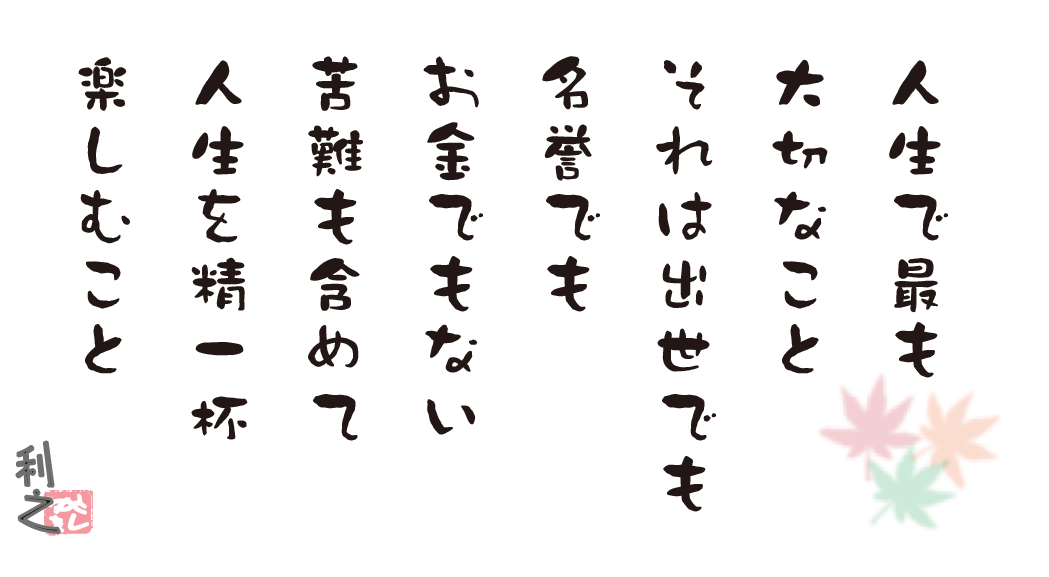 人生で最も
大切なこと
それは出世でも
名誉でも
お金でもない
苦難も含めて
人生を精一杯
楽しむこと
利之